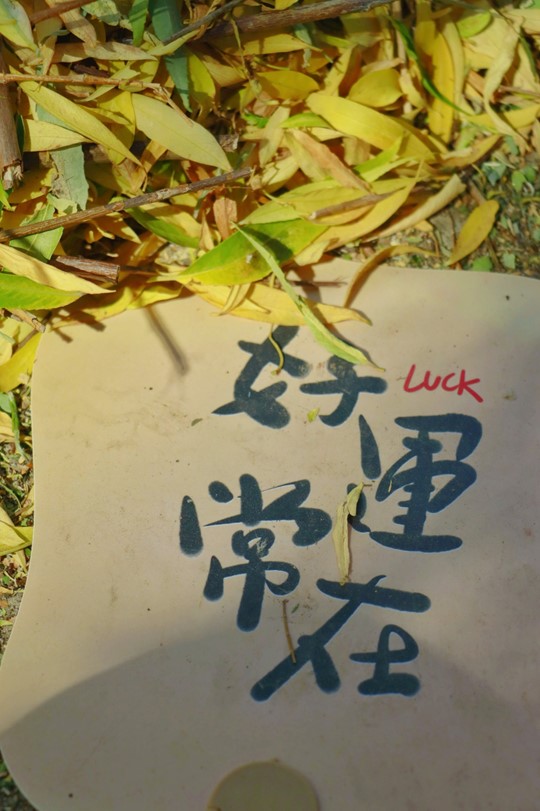 好運
LUCK
常在